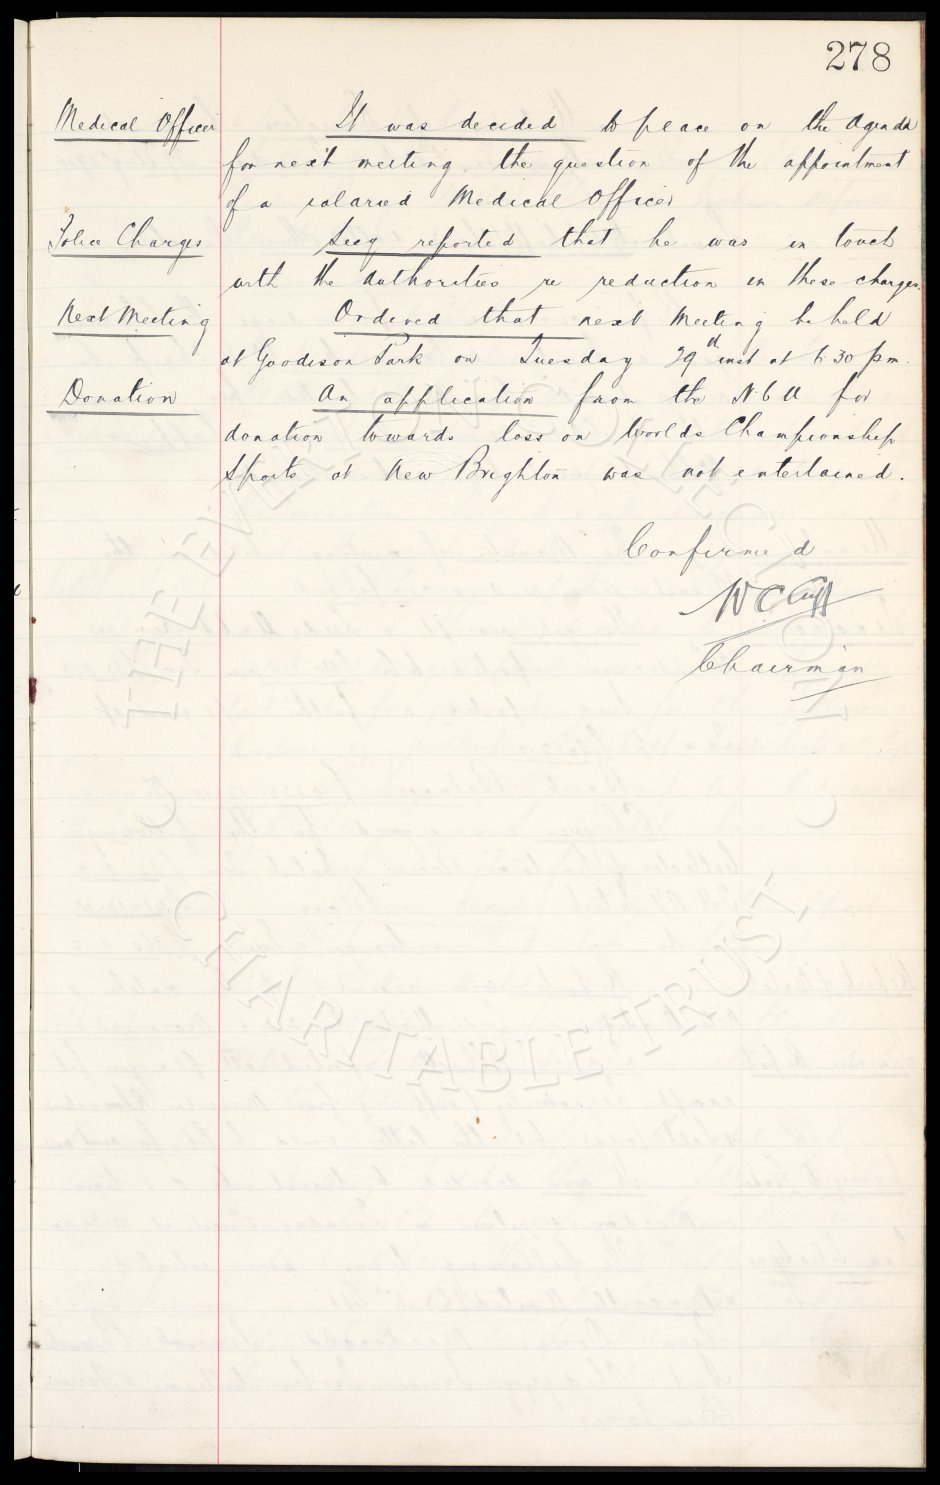 278
Medical Officer It was decided to place on the Agenda
for next meeting the question of the appointment
of a salaried Medical Officer
Police Charges Secy reported that he was in touch
with the Authorities re reduction in these charges.
Next Meeting Ordered that next Meeting be held
at Goodison Park on Tuesday 29th inst at 6 30 pm.
Donation An application from the N C U for
donation towards loss on Worlds Championship
Sports at New Brighton was not entertained.
Confirmed
W C Cuff
Chairman
THE EVERTON COLLECTION
CHARITABLE TRUST